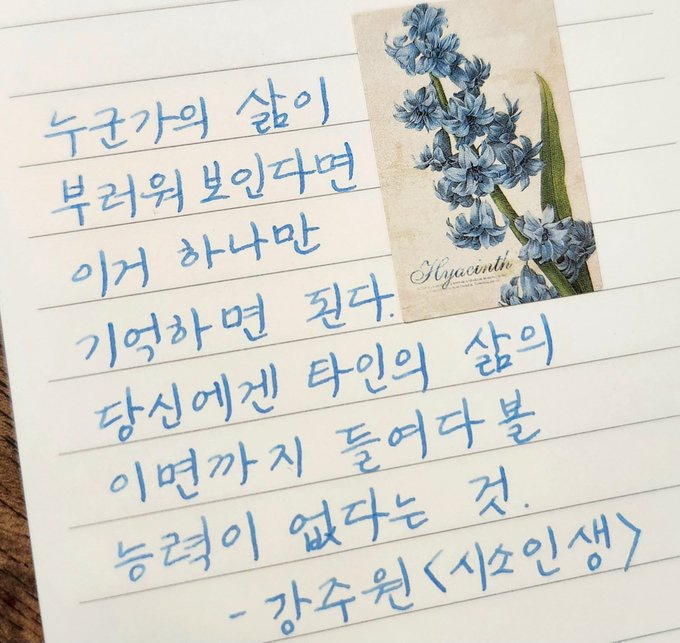 누군가의 삶이
부러워 보인다면
이거 하나만
기억하면 된다.
당신에겐 타인의 삶의
이면까지 들여다 볼
능력이 없다는 것.
- 강주원 <시소인생>
Hyacinth